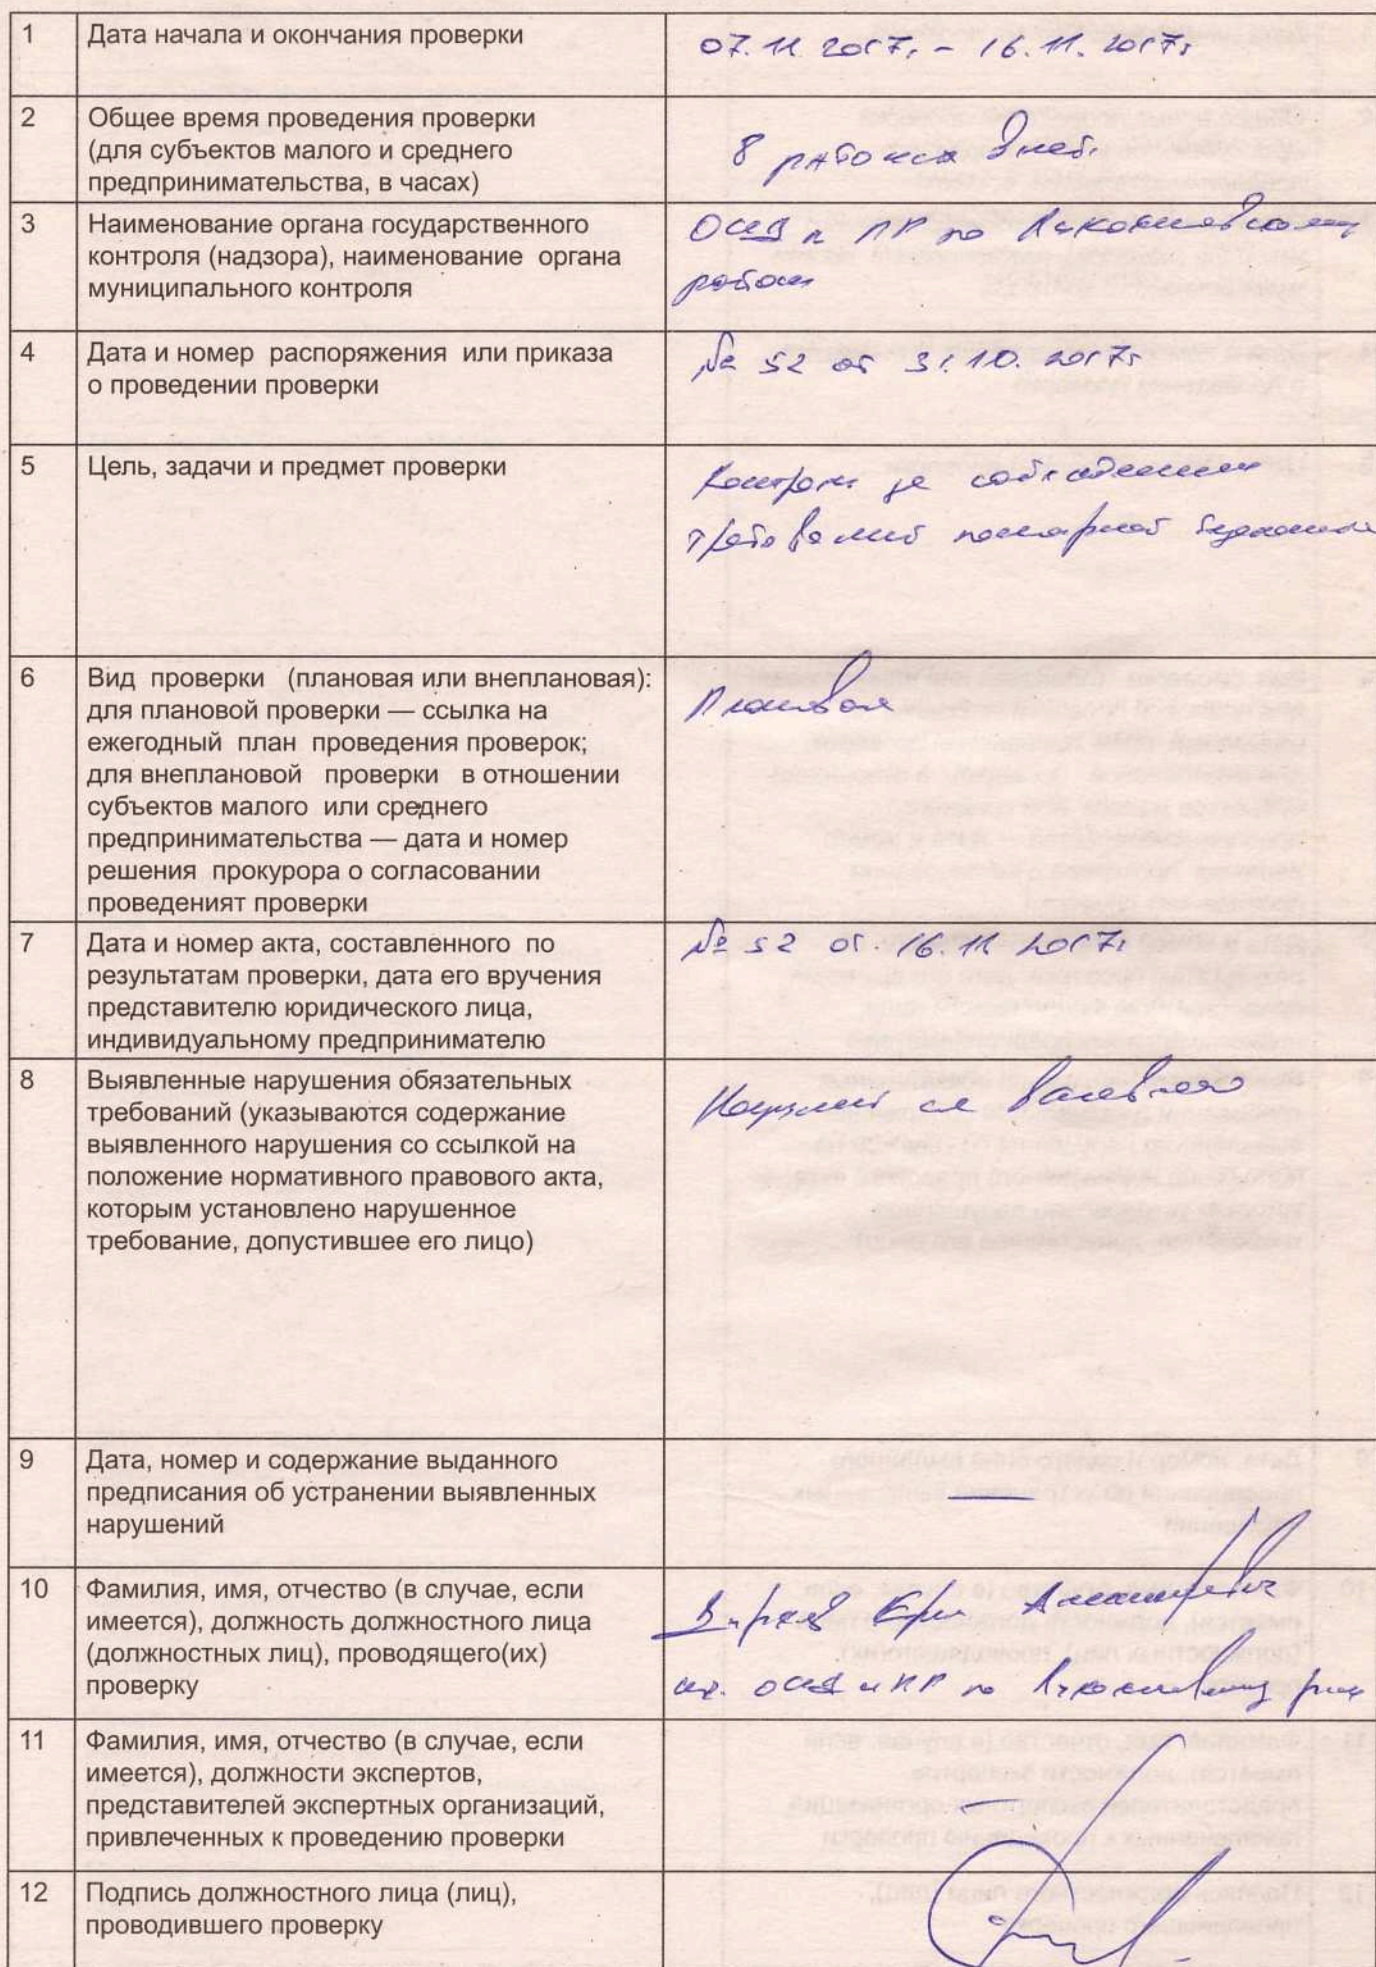 1 Дата начала и окончания проверки 07.11.2017г. - 16.11.2017г.
2 Общее время проведения проверки
(для субъектов малого и среднего
предпринимательства, в часах)
8 рабочих дней.
3 Наименование органа государственного
контроля (надзора), наименование органа
муниципального контроля
ОНД и ПР по
району
4 Дата и номер распоряжения или приказа
о проведении проверки
№ 52 от 31.10.2017г
5 Цель, задачи и предмет проверки
Контроль за соблюдением
требований пожарной безопасности
6 Вид проверки (плановая или внеплановая):
для плановой проверки — ссылка на
ежегодный план проведения проверок;
для внеплановой проверки в отношении
субъектов малого или среднего
предпринимательства — дата и номер
решения прокурора о согласовании
проведеният проверки
Плановая
7 Дата и номер акта, составленного по
результатам проверки, дата его вручения
представителю юридического лица,
индивидуальному предпринимателю
№ 52 от. 16.11.2017г
8 Выявленные нарушения обязательных
требований (указываются содержание
выявленного нарушения со ссылкой на
положение нормативного правового акта,
которым установлено нарушенное
требование, допустившее его лицо)
Нарушений не выявлено
9 Дата, номер и содержание выданного
предписания об устранении выявленных
нарушений
—
10 Фамилия, имя, отчество (в случае, если
имеется), должность должностного лица
(должностных лиц), проводящего(их)
проверку
ОНД и ПР по
11 Фамилия, имя, отчество (в случае, если
имеется), должности экспертов,
представителей экспертных организаций,
привлеченных к проведению проверки
12 Подпись должностного лица (лиц),
проводившего проверку